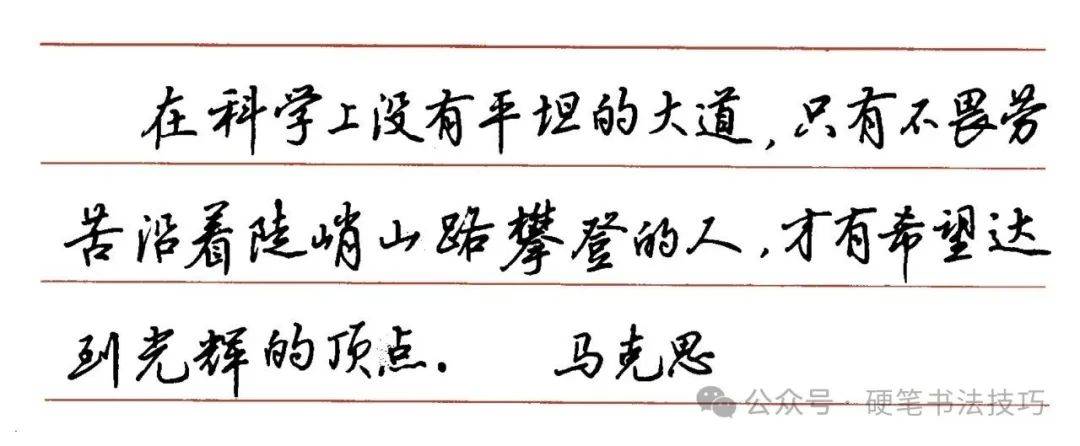 在科学上没有平坦的大道,只有不畏劳
苦沿着陡峭山路攀登的人,才有希望达
到光辉的顶点.  马克思
公众号·硬笔书法技巧